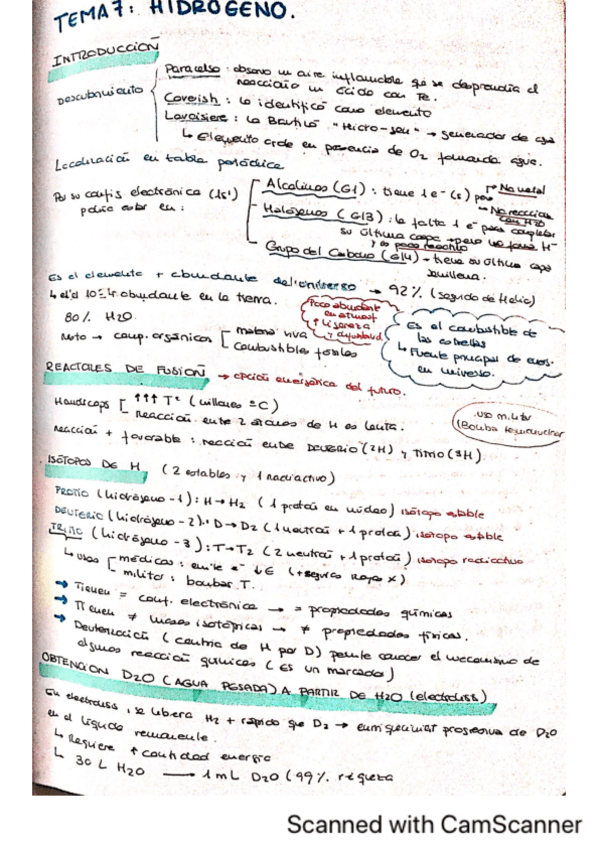 TEMA 7: HIDRÓGENO.
INTRODUCCIÓN
Descubrimiento
Paracelso: observó un aire inflamable que se desprendía al
reaccionar un ácido con Fe.
Caveish: lo identificó como elemento
Lavoisiere: lo Bautizó "Hidro-gen" → generador de agua
↳ Elemento arde en presencia de O2 formando agua.
Localización en tabla periódica
Por su config electrónica (1s¹)
podría estar en:
Alcalinos (G1): tiene 1 e- (s) pero
No metal
No reacciona
con H2O
Halógenos (G17): le falta 1 e- para completar
su última capa → pero no forma H-
y es poco reactivo
Grupo del Carbono (G14) → tiene su última capa
semillena.
Es el elemento + abundante del universo → 92% (seguido de Helio)
↳ el 10º abundante en la tierra.
80% H2O.
Resto → comp. orgánicos
materia viva
combustibles fósiles
Poco abundante
en atmosf
↑ ligereza
y difusividad
Es el combustible de
las estrellas
↳ Fuente principal de energ.
en universo.
REACTORES DE FUSIÓN → opción energética del futuro.
Handicaps
↑↑↑ Tª (millones ºC)
Reacción entre 2 átomos de H es lenta.
reacción + favorable: reacción entre Deuterio (2H) y Tritio (3H).
uso militar
(Bomba termonuclear
ISÓTOPOS DE H (2 estables y 1 radiactivo)
PROTIO (hidrógeno-1): H → H2 (1 protón en núcleo) isótopo estable
DEUTERIO (hidrógeno-2): D → D2 (1 neutrón + 1 protón) isótopo estable
TRITIO (hidrógeno-3): T → T2 (2 neutrón + 1 protón) isótopo radiactivo
↳ usos
médicos: emite e- ↓E (+seguros rayos x)
militar: bombas T.
→ Tienen = conf. electrónica → = propiedades químicas
→ Tienen ≠ masas isotópicas → ≠ propiedades físicas.
→ Deuteración (cambio de H por D) permite conocer el mecanismo de
algunos reacción químicas (Es un marcador)
OBTENCIÓN D2O (AGUA PESADA) A PARTIR DE H2O (electrolisis)
En electrolisis, se libera H2 + rápido que D2 → enriquecimiento progresivo de D2O
en el líquido remanente.
↳ Requiere ↑ cantidad energía
↳ 30 L H2O → 1 mL D2O (99% riqueza
Scanned with CamScanner